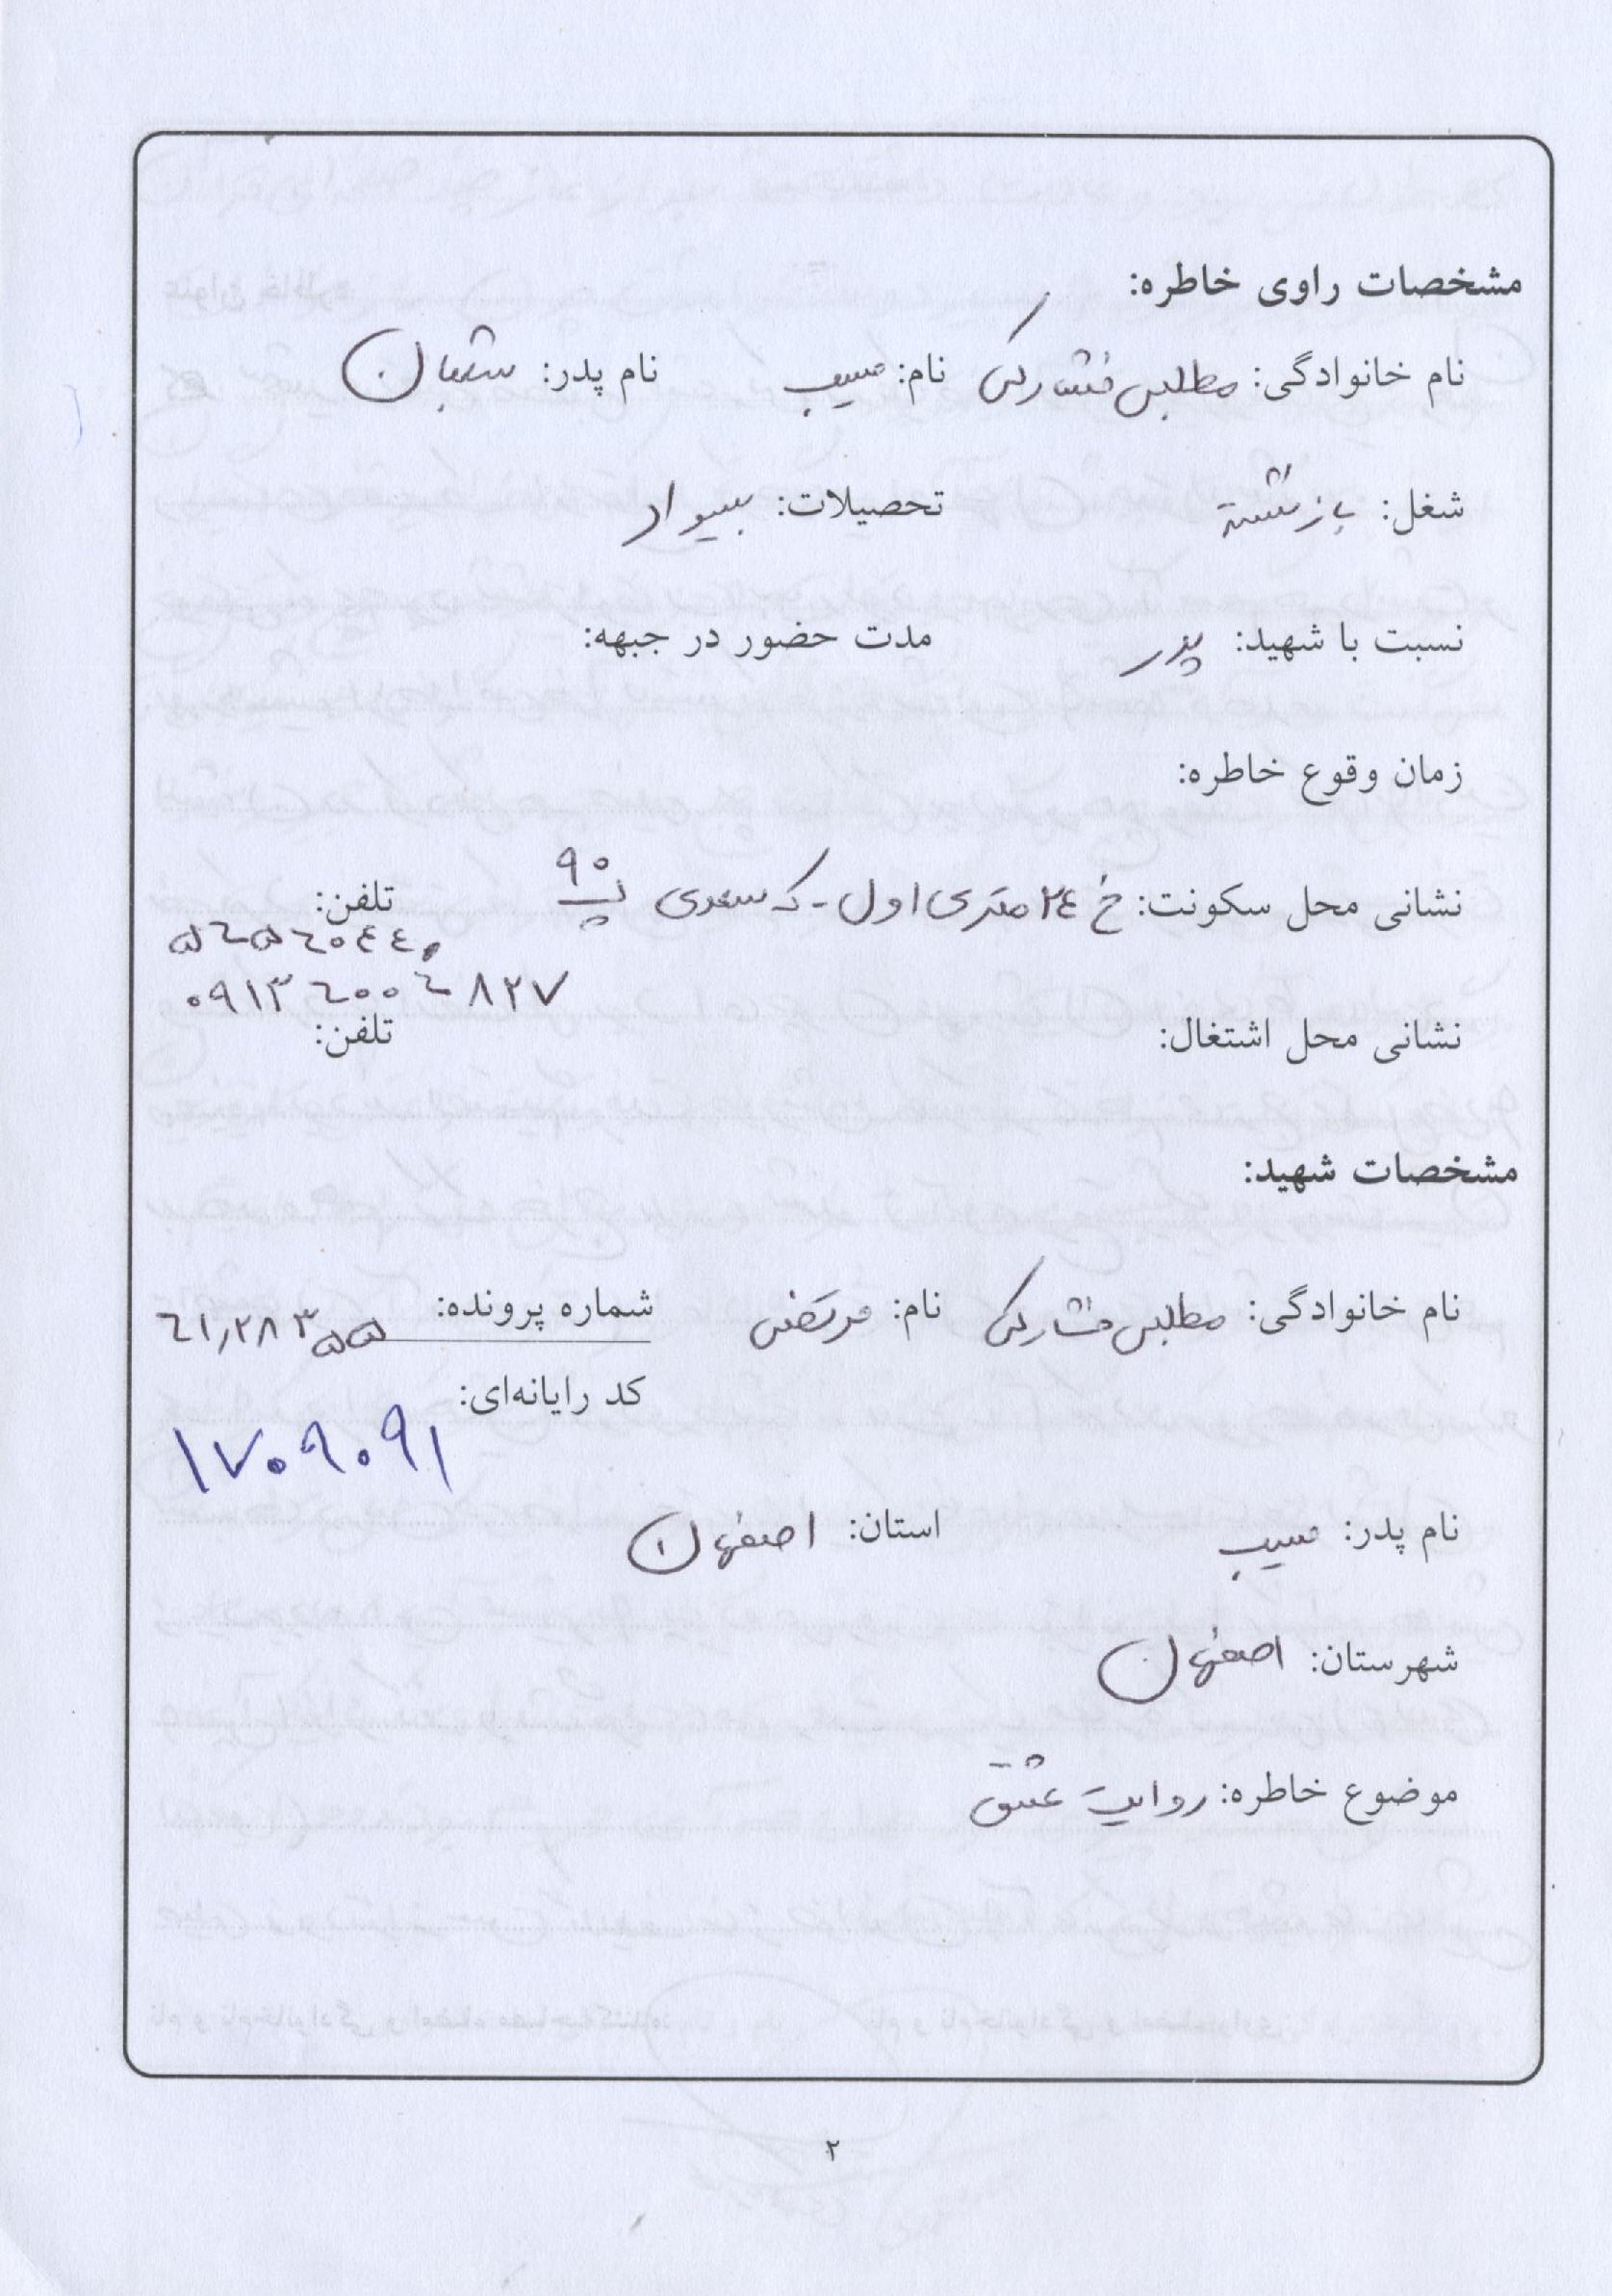 مشخصات راوی خاطره:
نام خانوادگی: مطلبی فشارکی نام: حبیب نام پدر: شعبان
شغل: بازنشسته تحصیلات: بیسواد
نسبت با شهید: پدر مدت حضور در جبهه:
زمان وقوع خاطره:
نشانی محل سکونت: خ ۲۴ متری اول - ک سعدی پ ۹۰ تلفن:
۵۶۵۶۰۴۴۰
۰۹۱۳۶۰۰۶۸۲۷
نشانی محل اشتغال: تلفن:
مشخصات شهید:
نام خانوادگی: مطلبی فشارکی نام: مرتضی شماره پرونده: ۶۱٫۲۸۳۵۵
کد رایانه‌ای:
۱۷۰۹۰۹۱
نام پدر: حبیب استان: اصفهان
شهرستان: اصفهان
موضوع خاطره: روایت عشق
۲